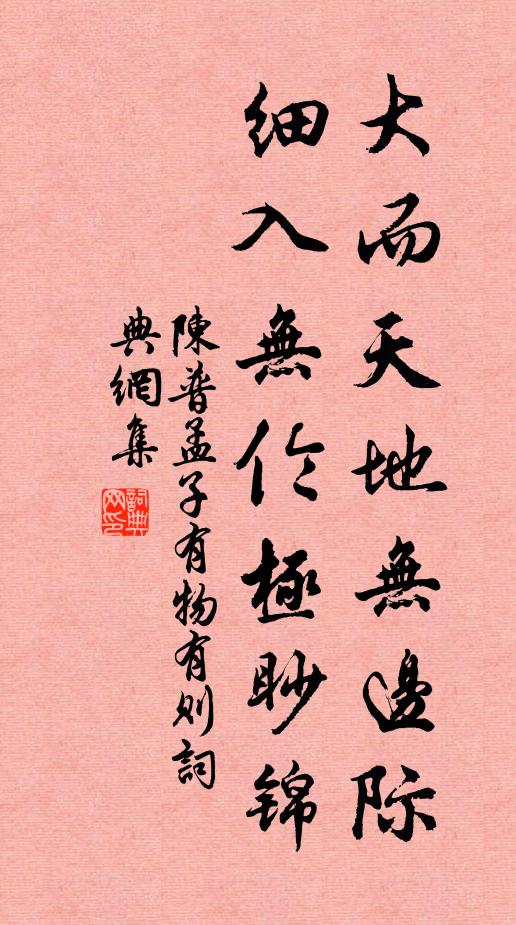 大而天地無邊际
細入無伦極眇锦
陳普孟子有物有则詞
典網集
詞典
网印